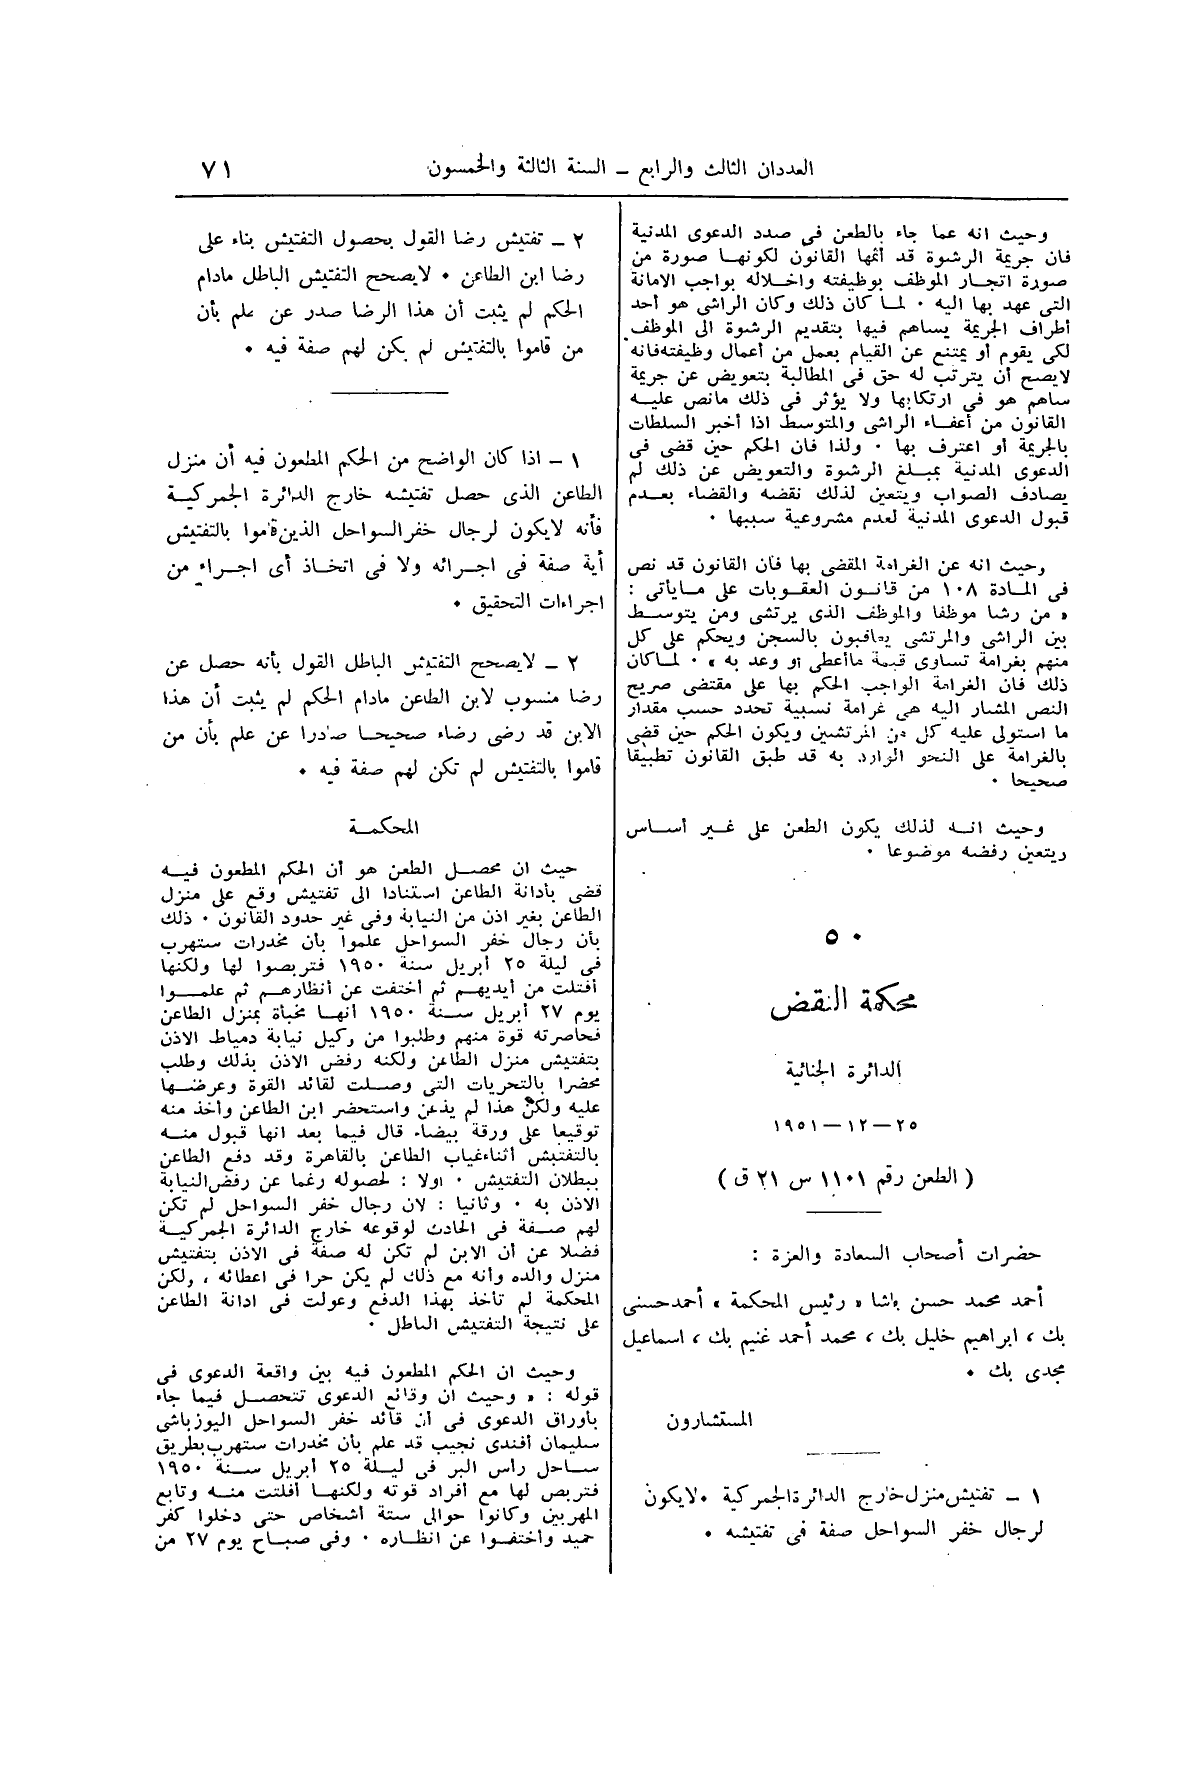 العددان الثالث والرابع – السنة الثالثة والخمسون
٧١
وحيث انه عما جاء بالطعن فى صدد الدعوى المدنية
فان جريمة الرشوة قد أثمها القانون لكونهـا صورة من
صورة اتجـار الموظف بوظيفته واخـلاله بواجب الامانة
التى عهد بها اليه ٠ لمـا كان ذلك وكان الراشى هو أحد
أطراف الجريمة يساهم فيها بتقديم الرشوة الى الموظف
لكى يقوم أو يمتنع عن القيام بعمل من أعمال وظيفته فانه
لايصح أن يترتب له حق فى المطالبة بتعويض عن جريمة
ساهم هو فى ارتكابها ولا يؤثر فى ذلك مانص عليـه
القانون من أعفـاء الراشى والمتوسط اذا أخبر السلطات
بالجريمة أو اعترف بها ٠ ولذا فان الحكم حين قضى فى
الدعوى المدنية بمبلغ الرشوة والتعويض عن ذلك لم
يصادف الصواب ويتعين لذلك نقضه والقضاء بعـدم
قبول الدعوى المدنية لعدم مشروعية سببها ٠
وحيث انه عن الغرامة المقضى بها فان القانون قد نص
فى المـادة ١٠٨ من قانـون العقوبات على مـايأتى :
« من رشا موظفا والموظف الذى يرتشى ومن يتوسـط
بين الراشى والمرتشى يعاقبون بالسجن ويحكم على كل
منهم بغرامة تساوى قيمة ماأعطى أو وعد به » ٠ لمـاكان
ذلك فان الغرامة الواجب الحكم بها على مقتضى صريح
النص المشار اليه هى غرامة نسبية تحدد حسب مقدار
ما استولى عليه كل من المرتشين ويكون الحكم حين قضى
بالغرامة على النحو الوارد به قد طبق القانون تطبيقا
صحيحا ٠
وحيث انـه لذلك يكون الطعن على غـير أسـاس
ويتعين رفضه موضوعا ٠
٥٠
محكمة النقض
الدائرة الجنائية
٢٥ – ١٢ – ١٩٥١
( الطعن رقم ١١٠١ س ٢١ ق )
حضرات أصحاب السعادة والعزة :
أحمد محمد حسن باشا « رئيس المحكمة » أحمد حسنى
بك ، ابراهيم خليل بك ، محمد أحمد غنيم بك ، اسماعيل
مجدى بك ٠
المستشارون
١ – تفتيش منزل خارج الدائرة الجمركية ٠ لايكون
لرجال خفر السواحل صفة فى تفتيشه ٠
٢ – تفتيش رضا القول بحصول التفتيش بناء على
رضا ابن الطاعن ٠ لايصحح التفتيش الباطل مادام
الحكم لم يثبت أن هذا الرضا صدر عن علم بأن
من قاموا بالتفتيش لم يكن لهم صفة فيه ٠
١ – اذا كان الواضح من الحكم المطعون فيه أن منزل
الطاعن الذى حصل تفتيشه خارج الدائرة الجمركيـة
فأنه لايكون لرجال خفر السواحل الذين قاموا بالتفتيش
أية صفة فى اجرائه ولا فى اتخـاذ أى اجـراء من
اجراءات التحقيق ٠
٢ – لايصحح التفتيش الباطل القول بأنه حصل عن
رضا منسوب لابن الطاعن مادام الحكم لم يثبت أن هذا
الابن قد رضى رضاء صحيحـا صادرا عن علم بأن من
قاموا بالتفتيش لم تكن لهم صفة فيه ٠
المحكمـة
حيث ان محصـل الطعن هو أن الحكم المطعون فيـه
قضى بأدانة الطاعن استنادا الى تفتيش وقع على منزل
الطاعن بغير اذن من النيابة وفى غير حدود القانون ٠ ذلك
بأن رجال خفر السواحل علموا بأن مخدرات ستهرب
فى ليلة ٢٥ أبريل سنة ١٩٥٠ فتربصوا لها ولكنها
أفتلت من أيديهـم ثم أختفت عن أنظارهـم ثم علمـوا
يوم ٢٧ أبريل سـنة ١٩٥٠ انهـا مخبأة بمنزل الطاعن
فحاصرته قوة منهم وطلبوا من وكيل نيابة دمياط الاذن
بتفتيش منزل الطاعن ولكنه رفض الاذن بذلك وطلب
محضرا بالتحريات التى وصـلت لقائد القوة وعرضـها
عليه ولكن هذا لم يذعن واستحضر ابن الطاعن وأخذ منه
توقيعا على ورقة بيضاء قال فيما بعد انها قبول منـه
بالتفتيش أثناء غياب الطاعن بالقاهرة وقد دفع الطاعن
ببطلان التفتيش ٠ اولا : لحصوله رغما عن رفض النيابة
الاذن به ٠ وثانيا : لان رجال خفر السواحل لم تكن
لهم صـفة فى الحادث لوقوعه خارج الدائرة الجمركيـة
فضلا عن أن الابن لم تكن له صفة فى الاذن بتفتيش
منزل والده وأنه مع ذلك لم يكن حرا فى اعطائه ، ولكن
المحكمة لم تأخذ بهذا الدفع وعولت فى ادانة الطاعن
على نتيجة التفتيش الباطل ٠
وحيث ان الحكم المطعون فيه بين واقعة الدعوى فى
قوله : « وحيث ان وقائع الدعوى تتحصـل فيما جاء
بأوراق الدعوى فى أن قائد خفر السواحل اليوزباشى
سليمان أفندى نجيب قد علم بأن مخدرات ستهرب بطريق
سـاحل رأس البر فى ليـلة ٢٥ أبريل سـنة ١٩٥٠
فتربص لها مع أفراد قوته ولكنهـا أفلتت منـه وتابع
المهربين وكانوا حوالى ستة أشخاص حتى دخلوا كفر
حميد وأختفـوا عن انظاره ٠ وفى صبـاح يوم ٢٧ من